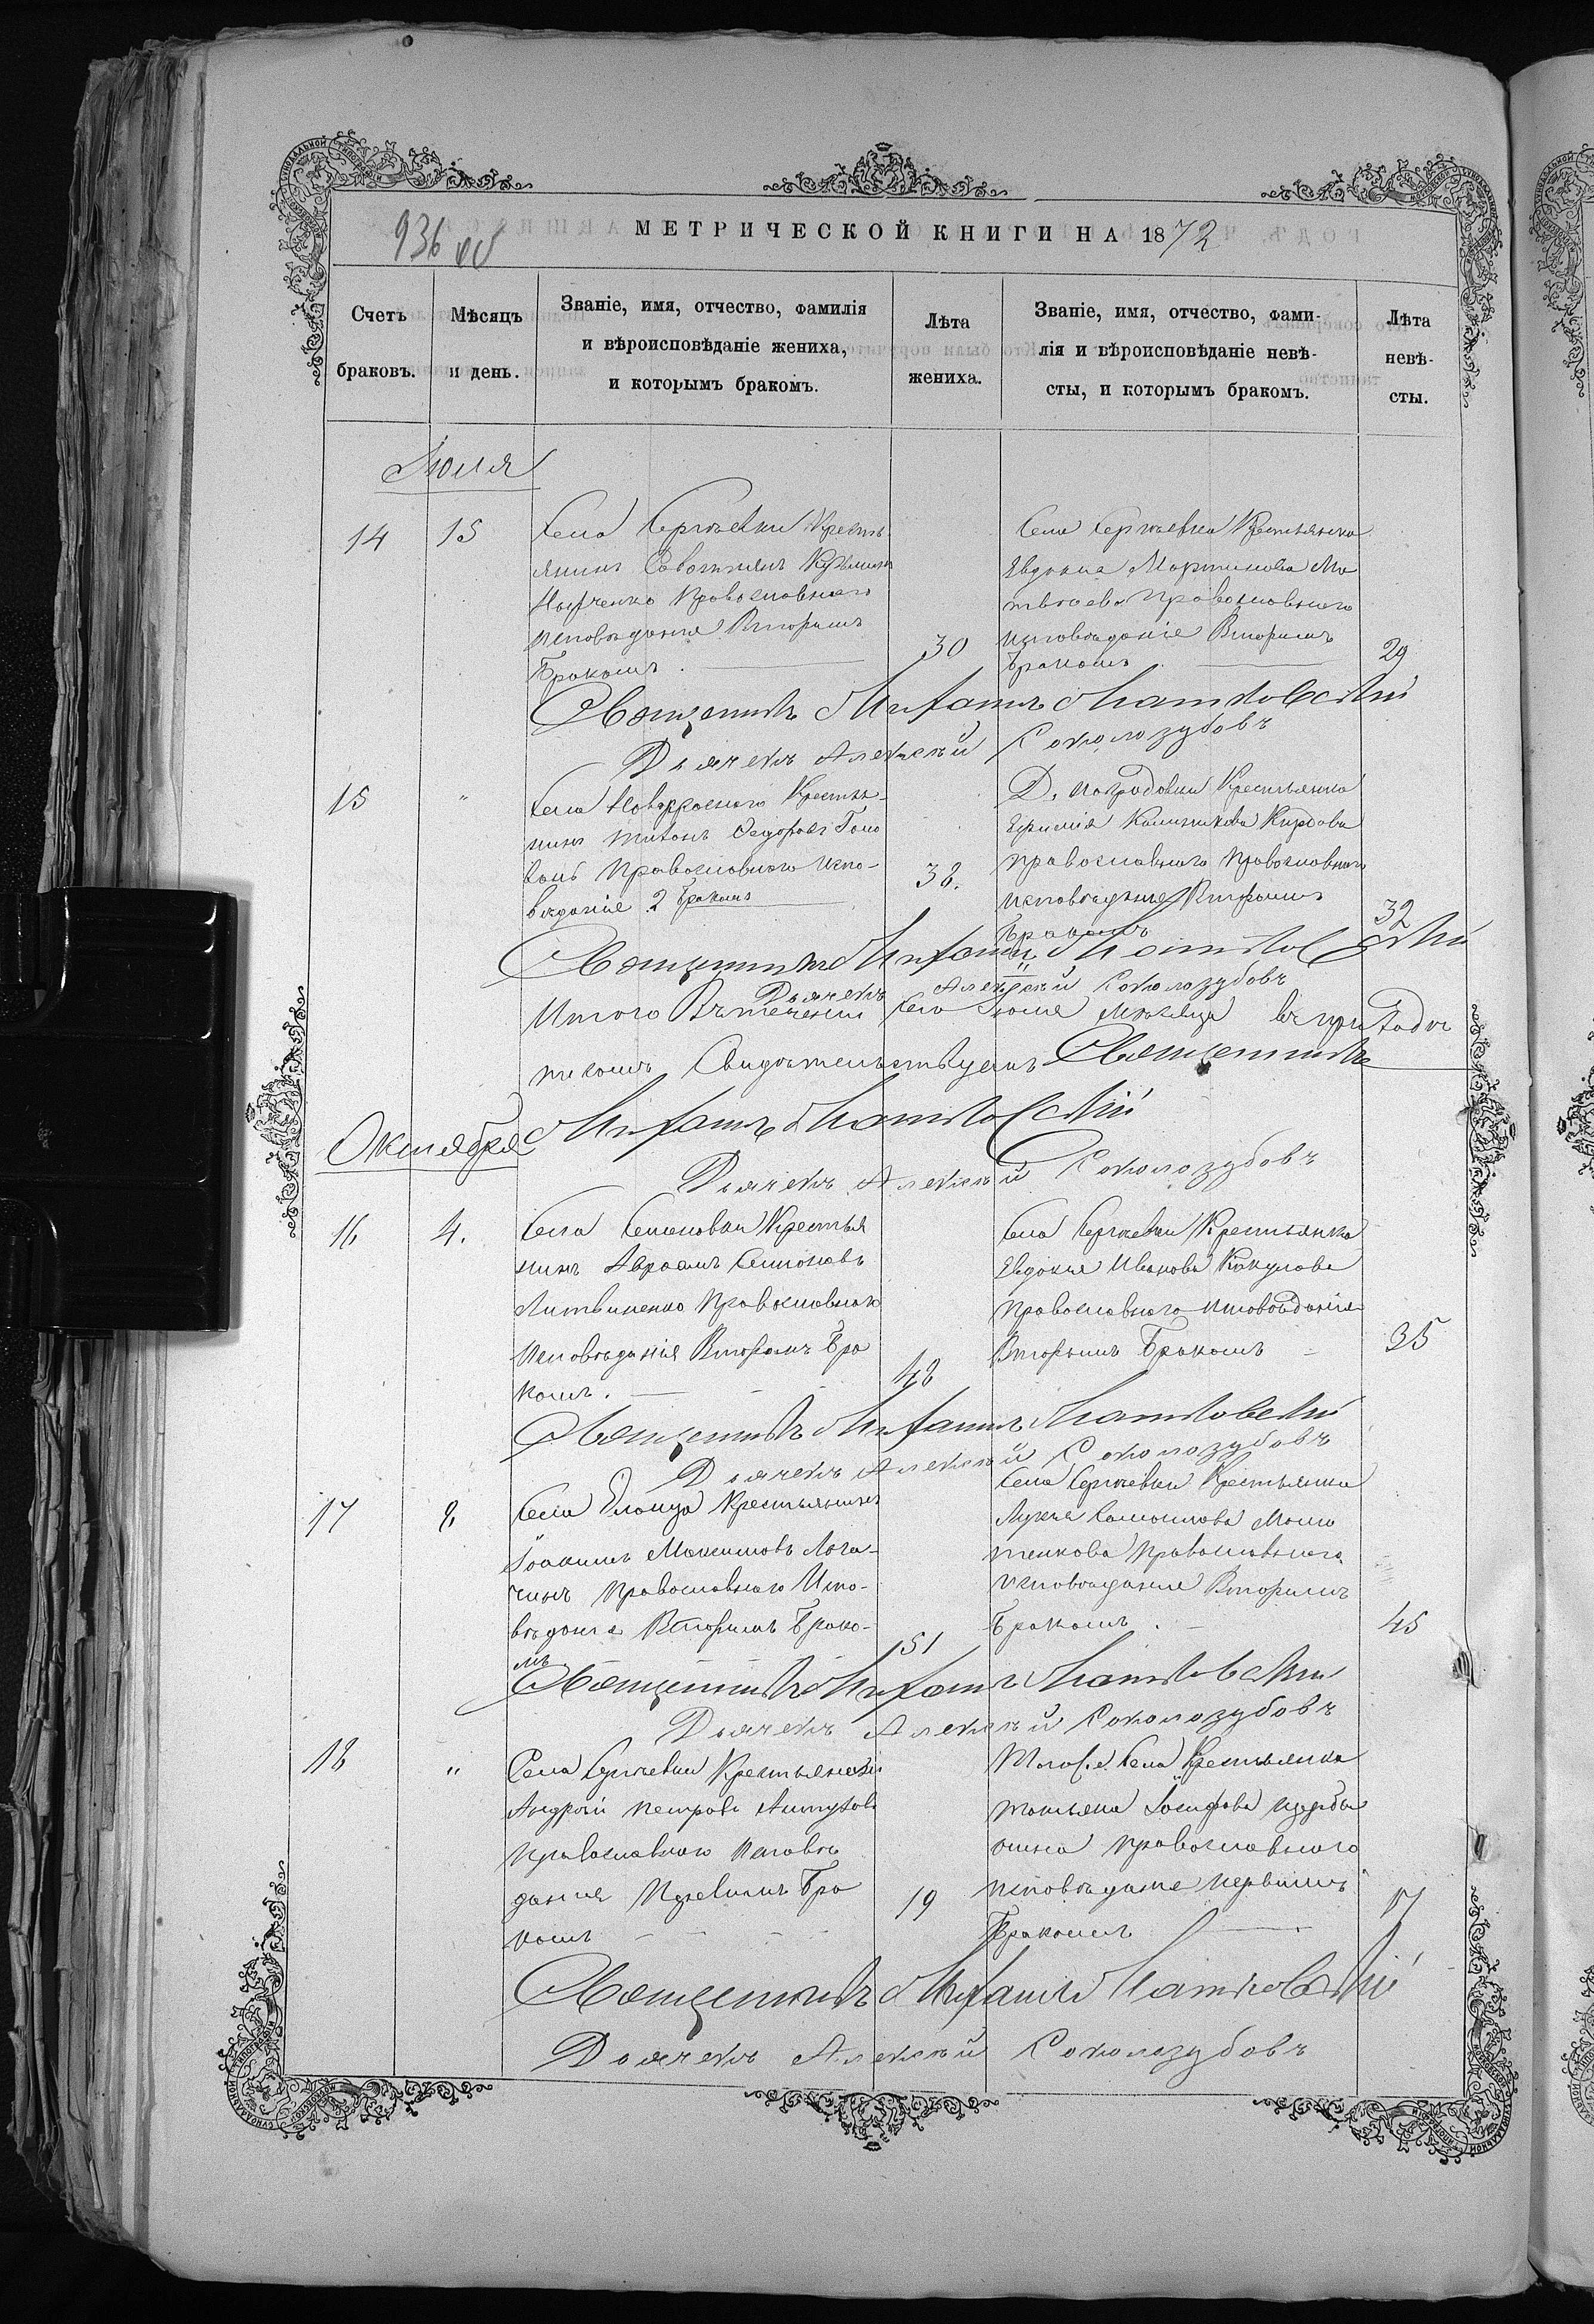 936 об
МЕТРИЧЕСКОЙ КНИГИ НА 1872
Счетъ браковъ.
Мѣсяцъ и день.
Званіе, имя, отчество, фамилія
и вѣроисповѣданіе жениха,
и которымъ бракомъ.
Лѣта
жениха.
Званіе, имя, отчество, фами-
лія и вѣроисповѣданіе невѣ-
сты, и которымъ бракомъ.
Лѣта
невѣ-
сты.
Июля
14
15
Села Сергѣевки Кресть
янинъ Савостіянъ Кузьминъ
Православнаго
исповѣданія Вторымъ
Бракомъ.
30
Села Сергѣевки Крестьянка
Евдокия Мартинова Ма
твѣева Православнаго
исповѣданіе Вторымъ
бракомъ.
29
Священникъ Михаилъ
Дьячекъ Алексѣй Сополозубовъ
15
"
Села Крестья-
нинъ Титонъ Федоровъ Голо
вань Православнаго испо-
вѣданіе 2 бракомъ
38.
Д. Крестьянка
Калиникова
православнаго Православнаго
исповѣданіе Вторымъ
бракомъ
32
Священникъ Михаилъ
Дьячекъ Алексѣй Сополозубовъ
Итого Въ теченіи сего Июля мѣсяца
Свидѣтельствуемъ Священникъ
Михаилъ
Дьячекъ Алексѣй Сополозубовъ
Октября
16
4.
Села Семеновки Крестья
нинъ Авраамъ Симоновъ
Литвиненко Православнаго
исповѣданія Вторымъ Бра
комъ.
48
Села Сергѣевки Крестьянка
Евдокия Иванова Кокулова
Православнаго исповѣданія
Вторымъ Бракомъ
35
Священникъ Михаилъ
Дьячекъ Алексѣй Сополозубовъ
17
8.
Села Еланца Крестьянинъ
Іоакимъ Максимовъ Лога-
чинъ Православнаго Испо-
вѣдание Вторымъ Брако-
мъ
51
Села Сергѣевки Крестьянка
Лукия Самоилова
Православнаго
исповѣдание Вторымъ
Бракомъ.
45
Священникъ Михаилъ
Дьячекъ Алексѣй Сополозубовъ
18
"
Села Сергѣевки Крестьянскій
Андрѣй Петровъ
Православнаго исповѣ
дания Первымъ Бра
комъ
19
Того же Села Крестьянка
Татьяна Іосифова
Православнаго
исповѣдание первымъ
Бракомъ
17
Священникъ Михаилъ
Дьячекъ Алексѣй Сополозубовъ